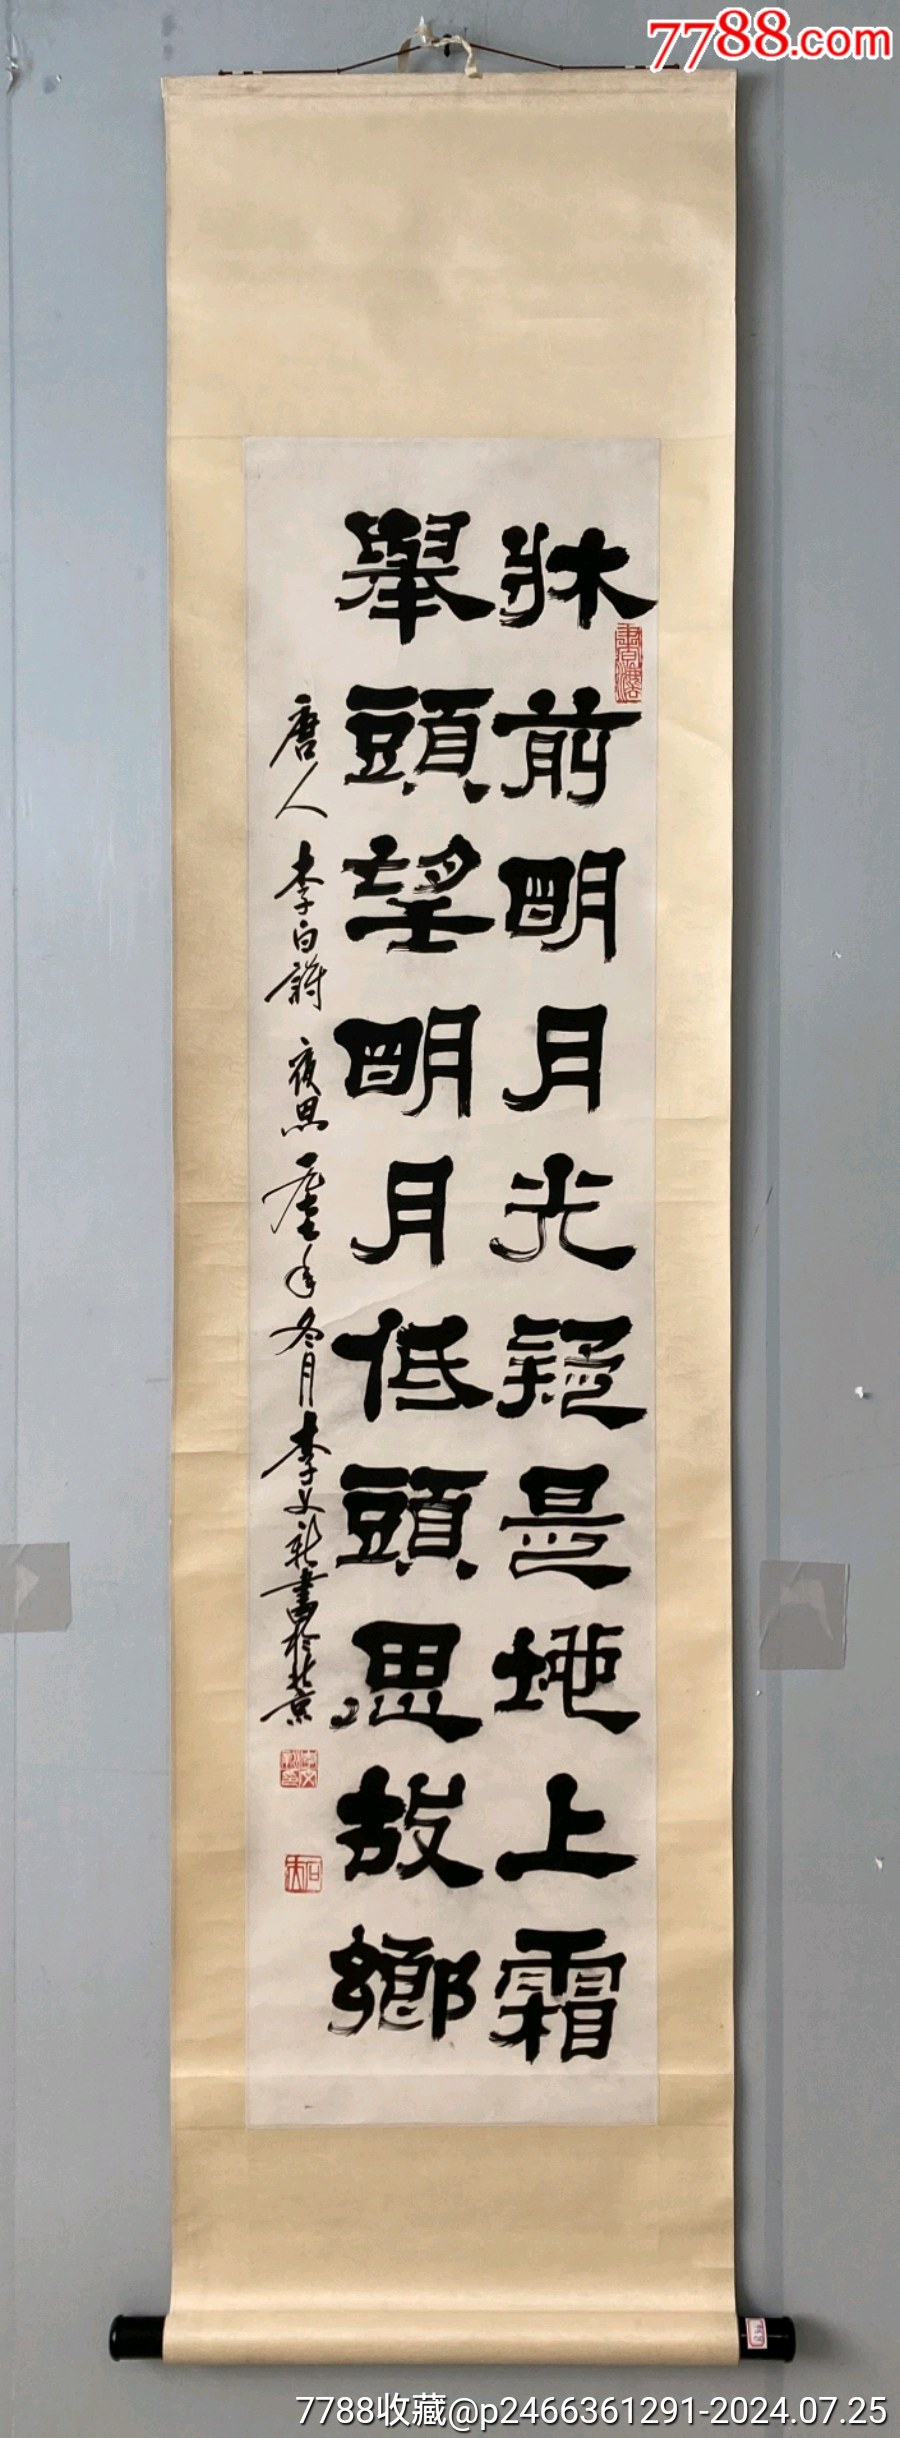 7788.com
牀前明月光疑是地上霜
舉頭望明月低頭思故鄉
唐人李白詩夜思一九九七年冬月李文新書於北京
7788收藏@p2466361291-2024.07.25